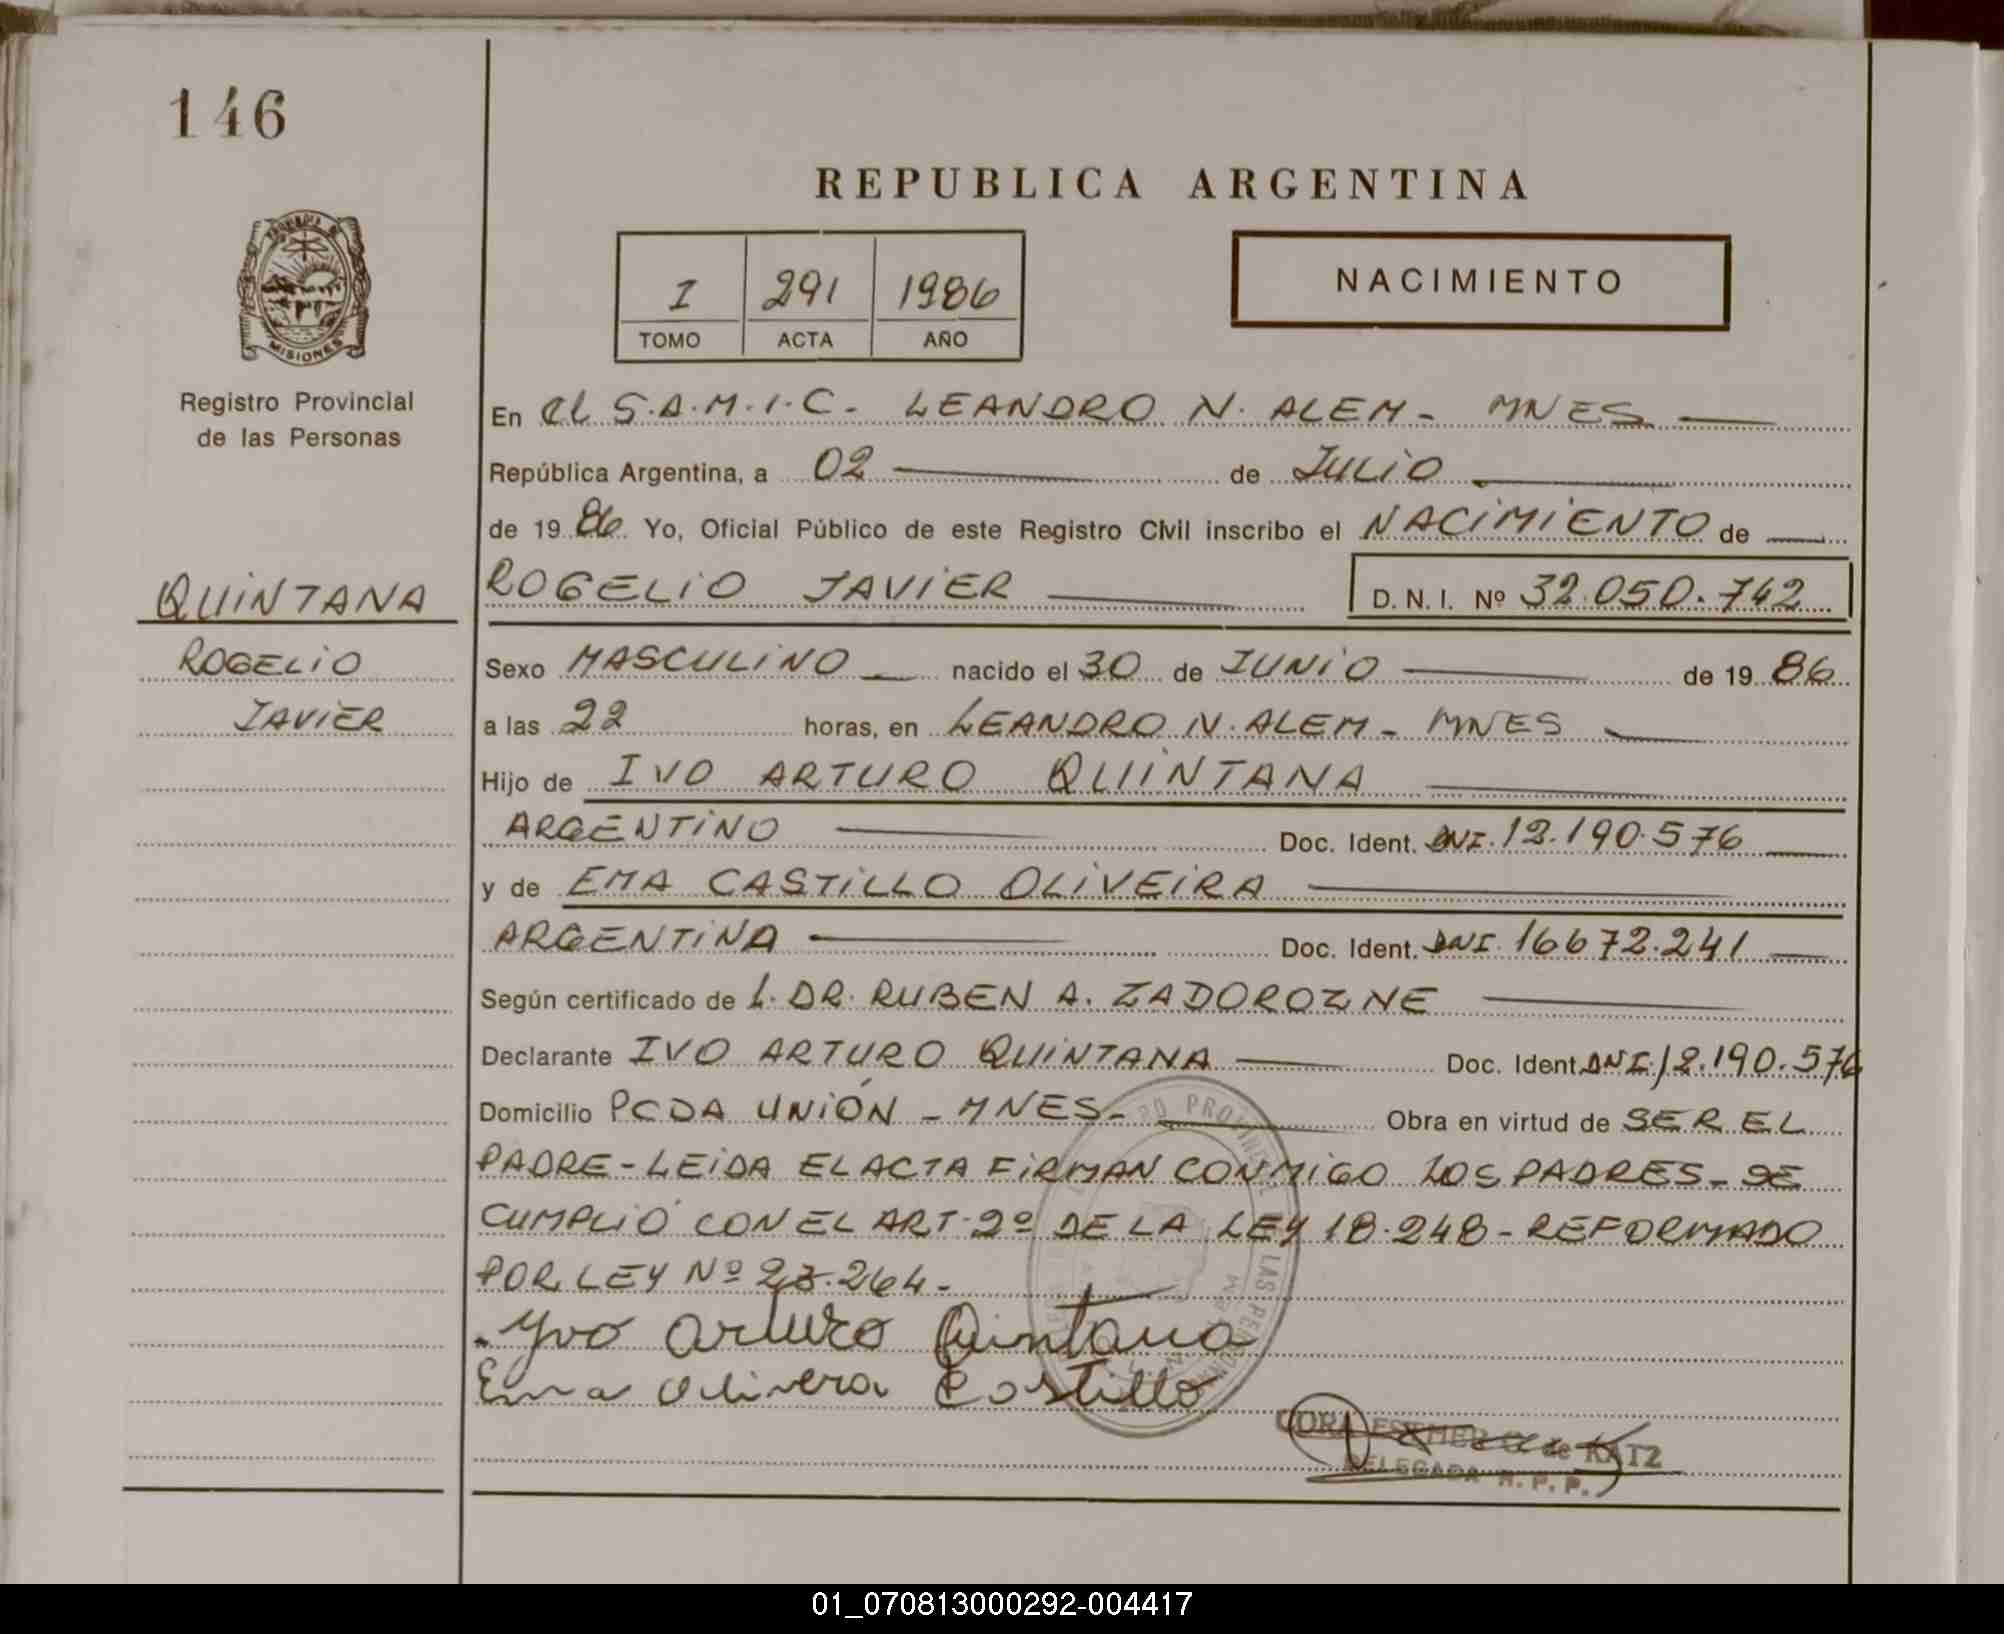 146
REPUBLICA ARGENTINA
I 291 1986
TOMO ACTA AÑO
NACIMIENTO
MISIONES
Registro Provincial
de las Personas
QUINTANA
ROGELIO
JAVIER
En el S.A.M.I.C. LEANDRO N. ALEM - MNES
República Argentina, a 02 de JULIO
de 1986 Yo, Oficial Público de este Registro Civil inscribo el NACIMIENTO de
ROGELIO JAVIER D. N. I. Nº 32.050.742
Sexo MASCULINO nacido el 30 de JUNIO de 1986
a las 22 horas, en LEANDRO N. ALEM - MNES
Hijo de IVO ARTURO QUINTANA
ARGENTINO Doc. Ident. DNI. 12.190.576
y de EMA CASTILLO OLIVEIRA
ARGENTINA Doc. Ident. DNI. 16672.241
Según certificado de L. DR. RUBEN A. ZADOROZNE
Declarante IVO ARTURO QUINTANA Doc. Ident. DNI. 12.190.576
Domicilio PCDA UNIÓN - MNES - Obra en virtud de SER EL
PADRE - LEIDA EL ACTA FIRMAN CONMIGO LOS PADRES - SE
CUMPLIÓ CON EL ART. 2º DE LA LEY 18.248 - REFORMADO
POR LEY Nº 23.264 -
Yvo Arturo Quintana
Ema Olivera Castillo
de KATZ
DELEGADA R. P. P.
01_070813000292-004417